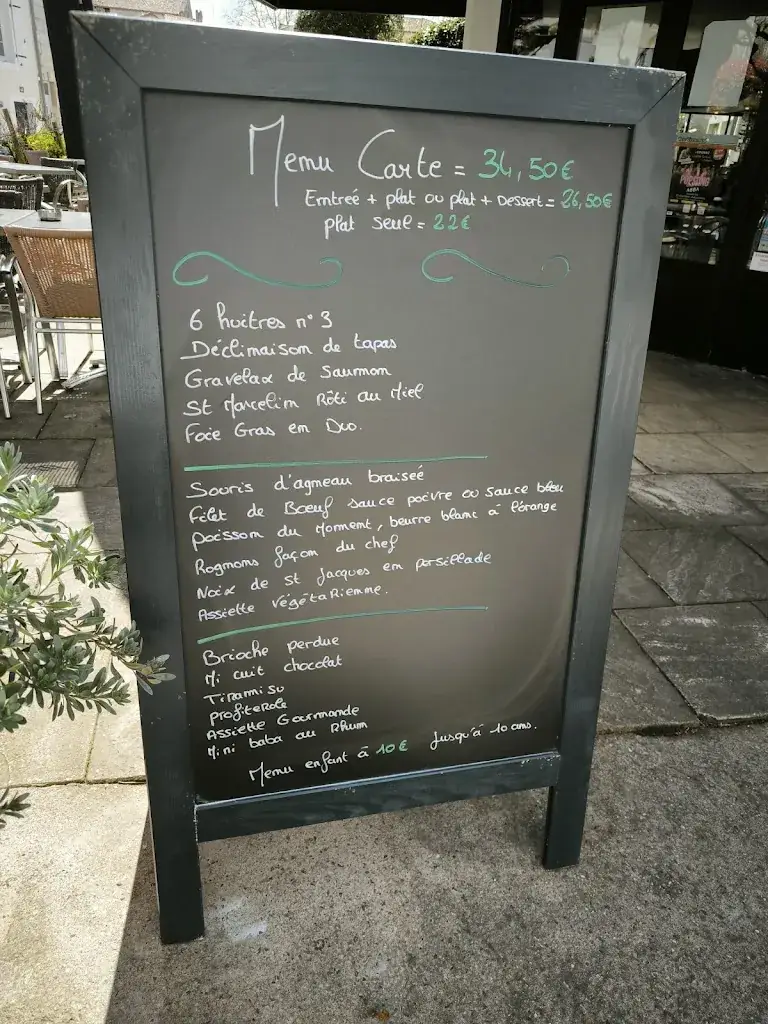 Menu Carte = 34,50€
Entreé + plat ou plat + Dessert = 26,50€
plat seul = 22€
6 huitres n°3
Déclinaison de tapas
Gravelax de Saumon
St Marcelin Rôti au Miel
Foie Gras en Duo.
Souris d'agneau braiseé
Filet de Bœuf sauce poivre ou sauce bleu
poisson du Moment, beurre blanc à l'orange
Rognons façon du chef
Noix de St Jacques en persillade
Assiette végétaRienne.
Brioche perdue
Mi cuit chocolat
Tiramisu
profiterole
Assiette Gourmande
Mini baba au Rhum
Menu enfant à 10€ Jusqu'à 10 ans.